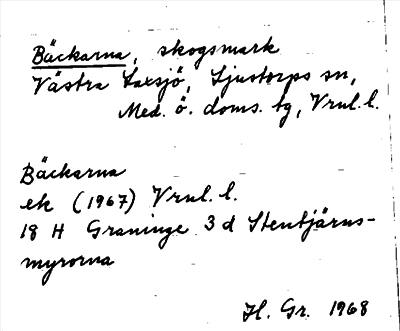 Bäckarna, skogsmark
Västra Laxsjö, Ljustorps sn,
Med. ö. doms. tg, Vrnl. l.
Bäckarna
ek (1967) Vrnl. l.
18 H Graninge 3 d Stentjärns-
myrorna
H. Gr. 1968